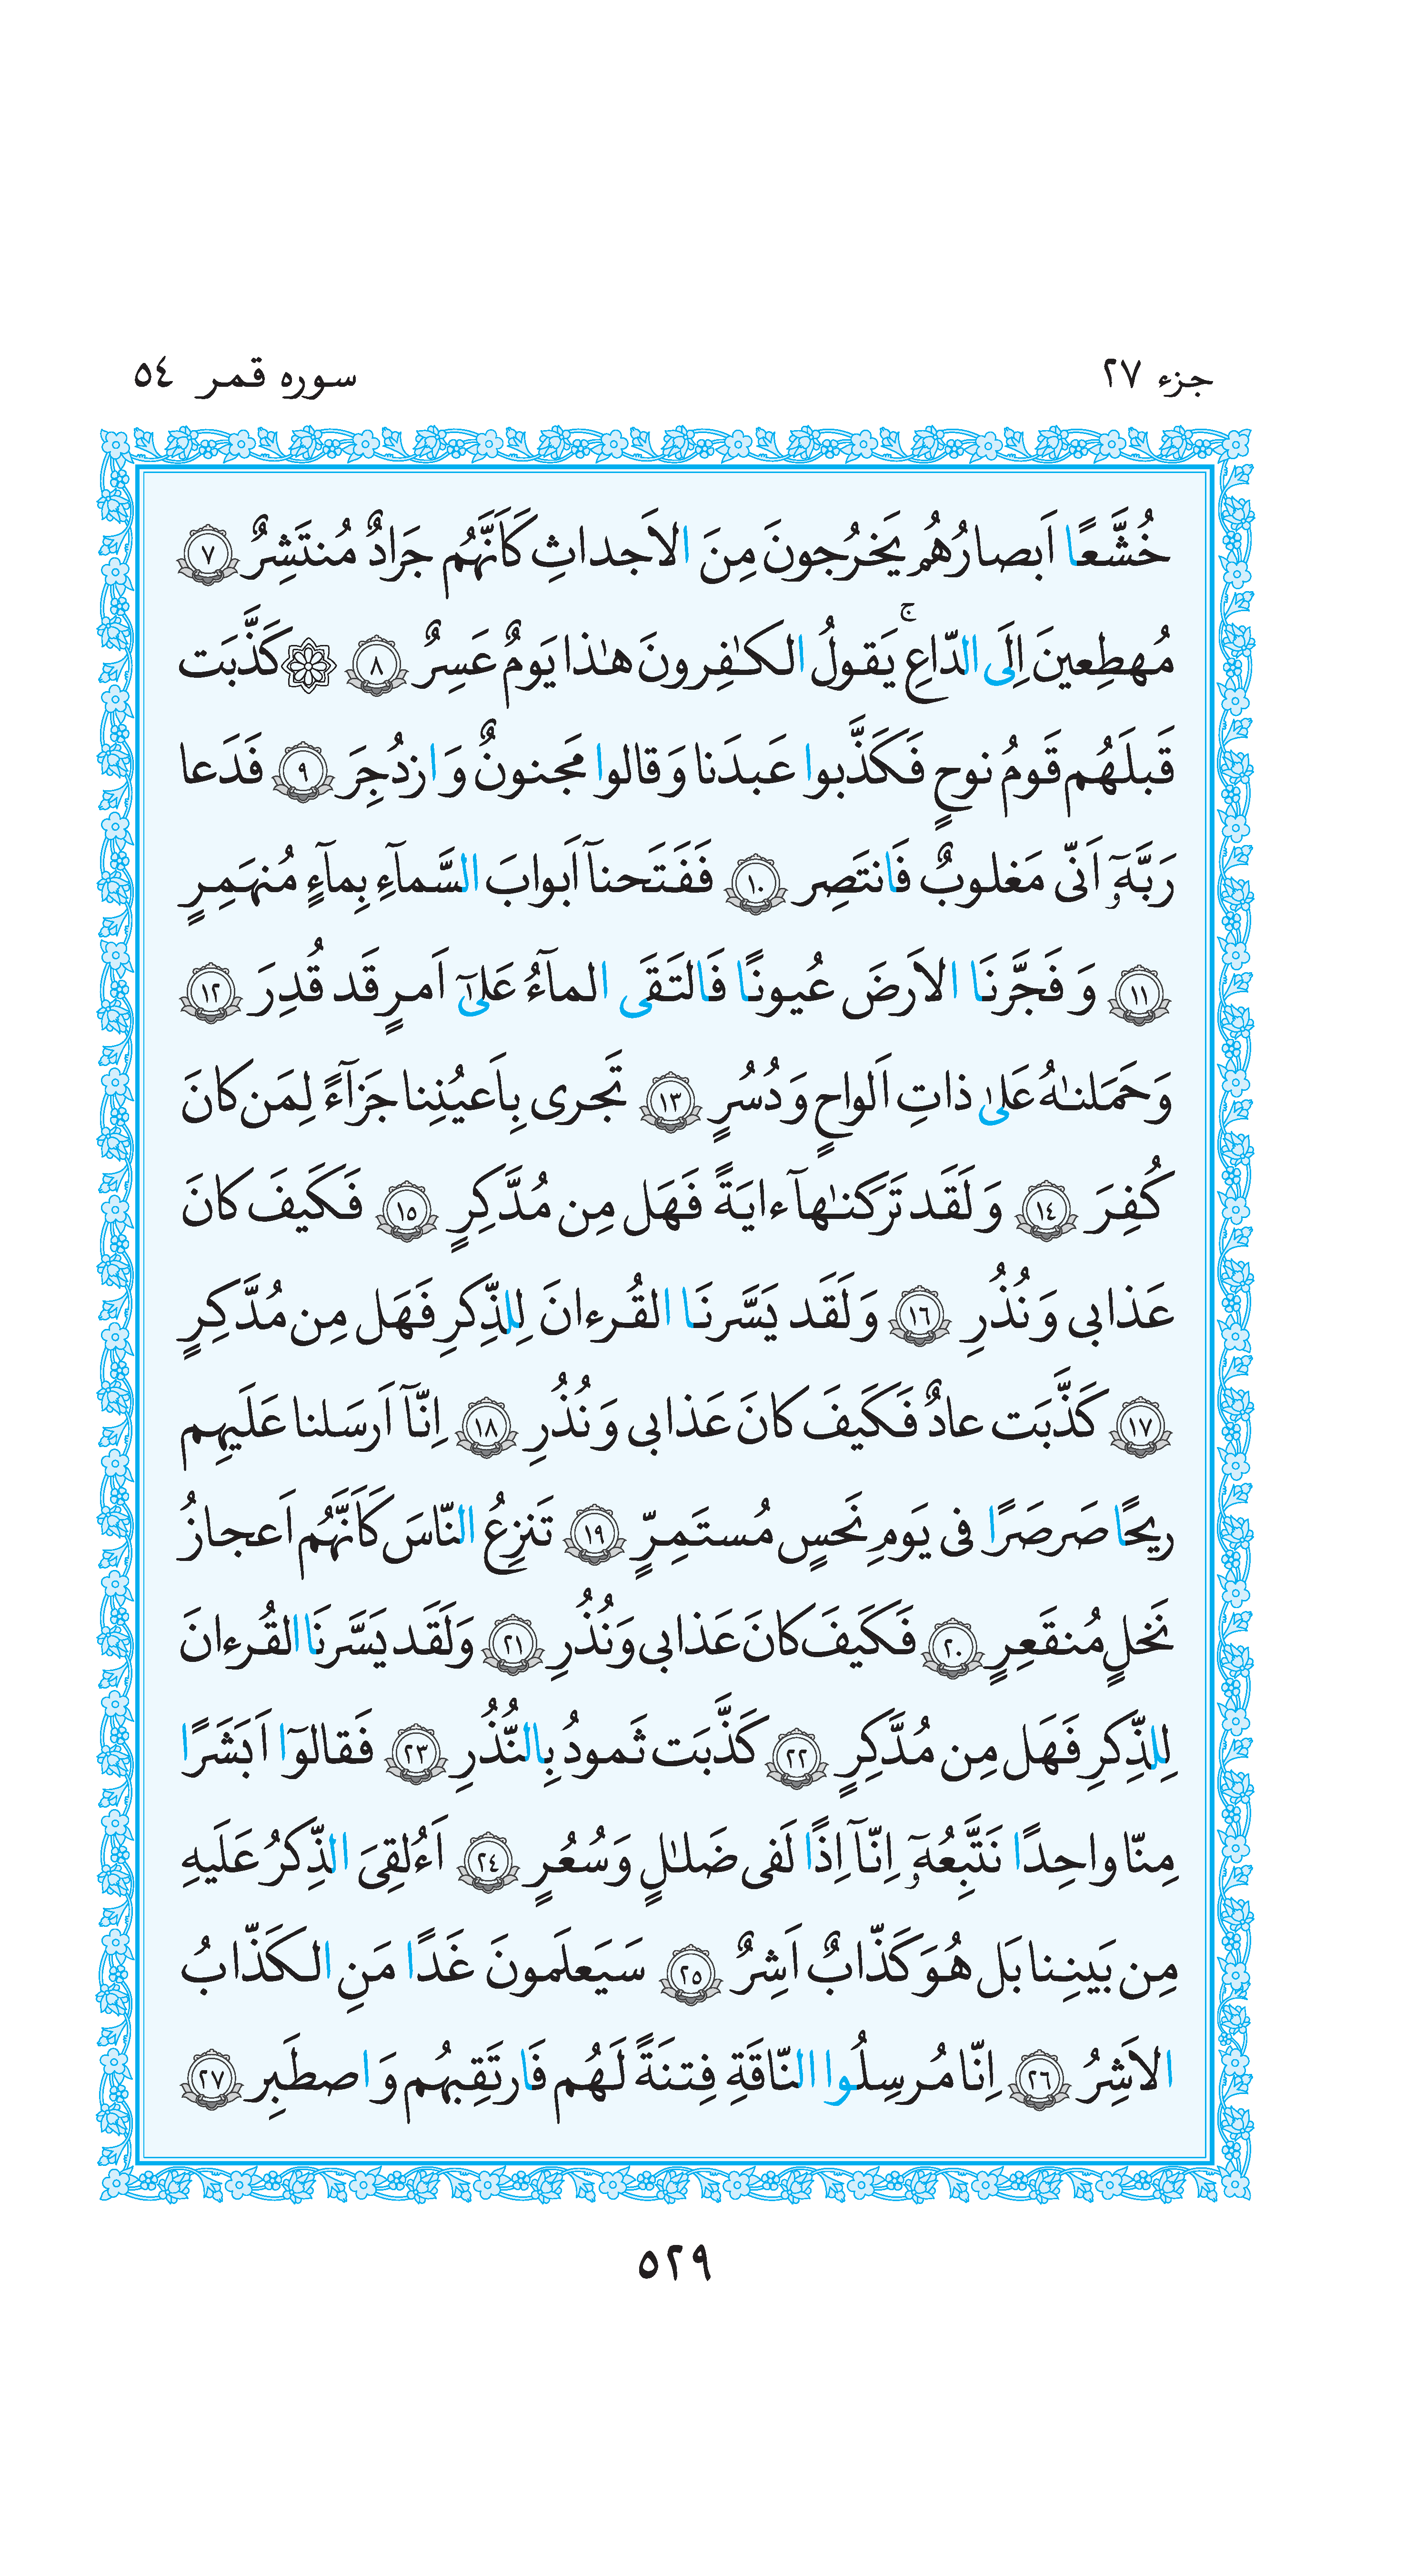 جزء ٢٧
سوره قمر ٥٤
خُشَّعًا اَبصارُهُم يَخرُجونَ مِنَ الاَجداثِ كَاَنَّهُم جَرادٌ مُنتَشِرٌ ٧
مُهطِعينَ اِلَى الدّاعِ ۚ يَقولُ الكٰفِرونَ هٰذا يَومٌ عَسِرٌ ٨ كَذَّبَت
قَبلَهُم قَومُ نوحٍ فَكَذَّبوا عَبدَنا وَ قالوا مَجنونٌ وَ ازدُجِرَ ٩ فَدَعا
رَبَّهُۥٓ اَنّى مَغلوبٌ فَانتَصِر ١٠ فَفَتَحنآ اَبوابَ السَّمآءِ بِمآءٍ مُنهَمِرٍ
١١ وَ فَجَّرنَا الاَرضَ عُيونًا فَالتَقَى المآءُ عَلىٰٓ اَمرٍ قَد قُدِرَ ١٢
وَ حَمَلنٰهُ عَلىٰ ذاتِ اَلواحٍ وَ دُسُرٍ ١٣ تَجرى بِاَعيُنِنا جَزآءً لِمَن كانَ
كُفِرَ ١٤ وَ لَقَد تَرَكنٰهآ ءايَةً فَهَل مِن مُدَّكِرٍ ١٥ فَكَيفَ كانَ
عَذابى وَ نُذُرِ ١٦ وَ لَقَد يَسَّرنَا القُرءانَ لِلذِّكرِ فَهَل مِن مُدَّكِرٍ
١٧ كَذَّبَت عادٌ فَكَيفَ كانَ عَذابى وَ نُذُرِ ١٨ اِنّآ اَرسَلنا عَلَيهِم
ريحًا صَرصَرًا فى يَومِ نَحسٍ مُستَمِرٍّ ١٩ تَنزِعُ النّاسَ كَاَنَّهُم اَعجازُ
نَخلٍ مُنقَعِرٍ ٢٠ فَكَيفَ كانَ عَذابى وَ نُذُرِ ٢١ وَ لَقَد يَسَّرنَا القُرءانَ
لِلذِّكرِ فَهَل مِن مُدَّكِرٍ ٢٢ كَذَّبَت ثَمودُ بِالنُّذُرِ ٢٣ فَقالوٓا اَبَشَرًا
مِنّا واحِدًا نَتَّبِعُهُۥٓ اِنّآ اِذًا لَفى ضَلٰلٍ وَ سُعُرٍ ٢٤ اَءُلقِىَ الذِّكرُ عَلَيهِ
مِن بَينِنا بَل هُوَ كَذّابٌ اَشِرٌ ٢٥ سَيَعلَمونَ غَدًا مَنِ الكَذّابُ
الاَشِرُ ٢٦ اِنّا مُرسِلُوا النّاقَةِ فِتنَةً لَهُم فَارتَقِبهُم وَ اصطَبِر ٢٧
٥٢٩